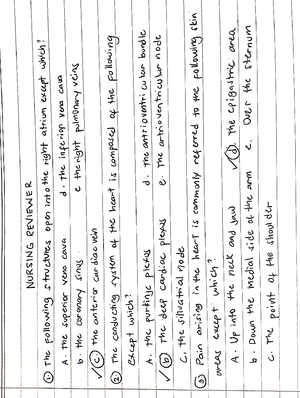 NURSING REVIEWER
① The following structures open into the right atrium except which?
A. The superior vena cava    d. The inferior vena cava
b. the coronary sinus    e the right pulmonary veins
✓ⓒ The anterior cardiac vein
② The conducting system of the heart is composed of the following
Except which?
A. the purkinje plexus    d. the antrioventricular bundle
✓ⓑ the deep cardiac plexus    e. The antrioventricular node
C. the silvatrial node
③ Pain arising in the heart is commonly referred to the following skin
areas except which?
A. Up into the neck and jaw    ✓ⓓ The epigastric area
b. Down the medial side of the arm    e. Over the sternum
c. The point of the shoulder